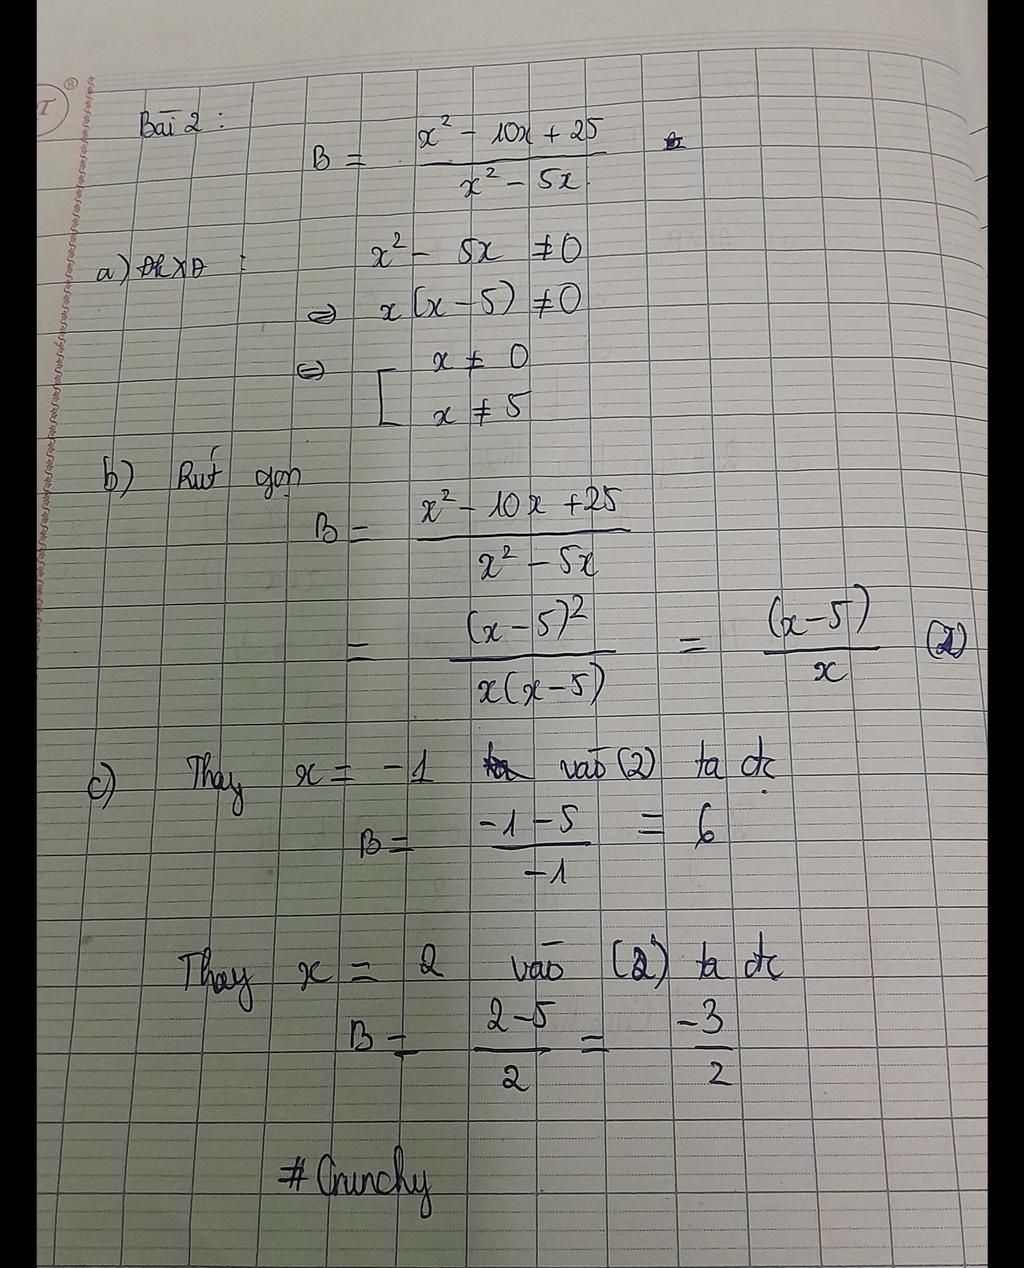 T ®
Bài 2 :
B = (x² - 10x + 25)/(x² - 5x)
a) ĐKXĐ : x² - 5x ≠ 0
⇔ x(x - 5) ≠ 0
⇔ [ x ≠ 0
x ≠ 5
b) Rút gọn
B = (x² - 10x + 25)/(x² - 5x)
= (x - 5)²/x(x - 5) = (x - 5)/x (2)
c) Thay x = -1 vào (2) ta đc
B = (-1 - 5)/-1 = 6
Thay x = 2 vào (2) ta đc
B = (2 - 5)/2 = -3/2
# Crunchy